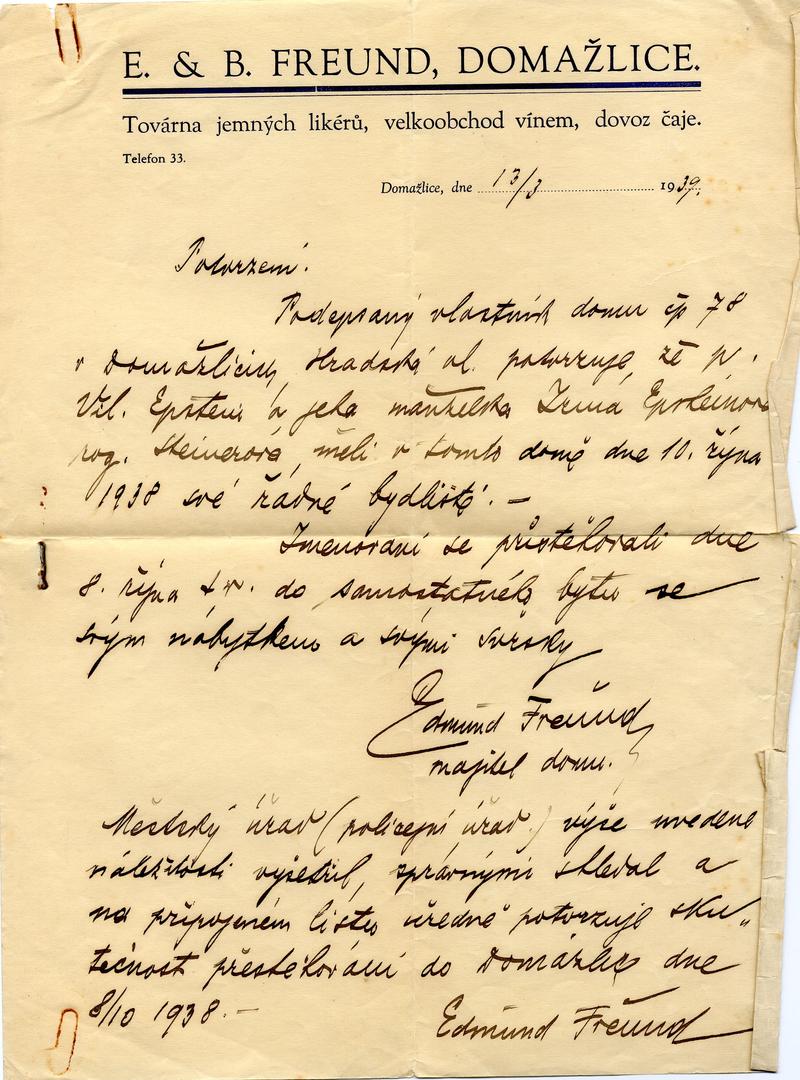 E. & B. FREUND, DOMAŽLICE.
Továrna jemných likérů, velkoobchod vínem, dovoz čaje.
Telefon 33.
Domažlice, dne 13/3 1939.
Potvrzení.
Podepsaný vlastník domu čp 78
v Domažlicích, Hradská ul. potvrzuje, že p.
Vil. Epstein a jeho manželka Irma Epsteinová
roz. Steinerová, měli v tomto domě dne 10. října
1938 své řádné bydliště. —
Jmenovaní se přistěhovali dne
8. října t.r. do samostatného bytu se
svým nábytkem a svými svršky
Edmund Freund
majitel domu.
Městský úřad (policejní úřad.) výše uvedené
náležitosti vyšetřil, správnými shledal a
na připojeném listu úředně potvrzuje sku„
tečnost přestěhování do Domažlic dne
8/10 1938. —
Edmund Freund